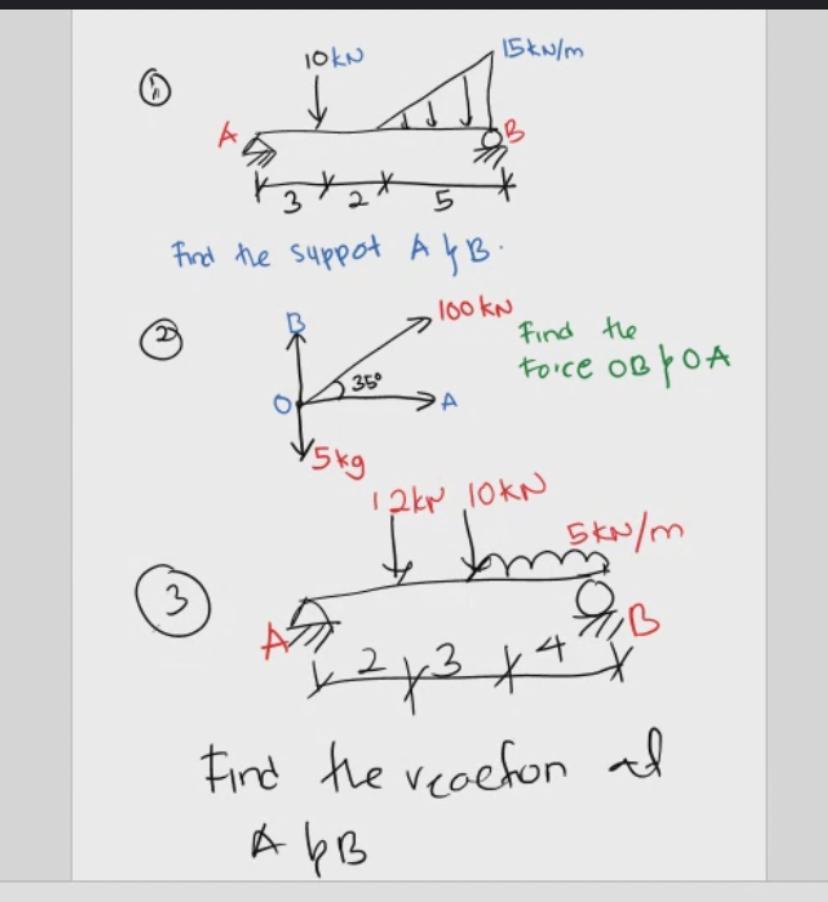 ①
10kN
15kN/m
A
B
3 2 5
Find the suppot A & B.
②
B
100kN
Find the
Force OB & OA
35°
O
A
5kg
③
12kN 10kN
5kN/m
A
B
2 3 4
Find the reaction at
A & B